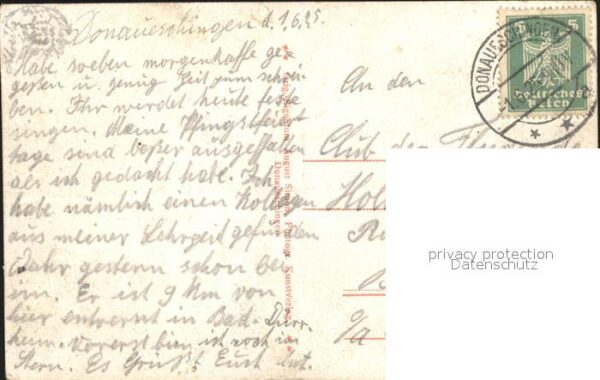 Donaueschingen d. 1.6.25.
Habe soeben morgenkaffe ge-
geßen u. genug Zeit zum schrei-
ben. Ihr werdet heute feste
singen. Meine Pfingstfeier
tage sind beßer ausgefallen
als ich gedacht habe. Ich
habe nämlich einen Kollegen
aus meiner Lehrzeit gefunden
Wahr gestern schon bei
im. Er ist 9 Km von
hier entvernt in Bad-Dürr-
heim. vorerst bien ich noch im
Stern. Es Grüßt Euch
An den
Club der
DONAUESCHINGEN
5
Deutsches
Reich
August Simon, Photogr. Kunstverlag
Donaueschingen
privacy protection
Datenschutz